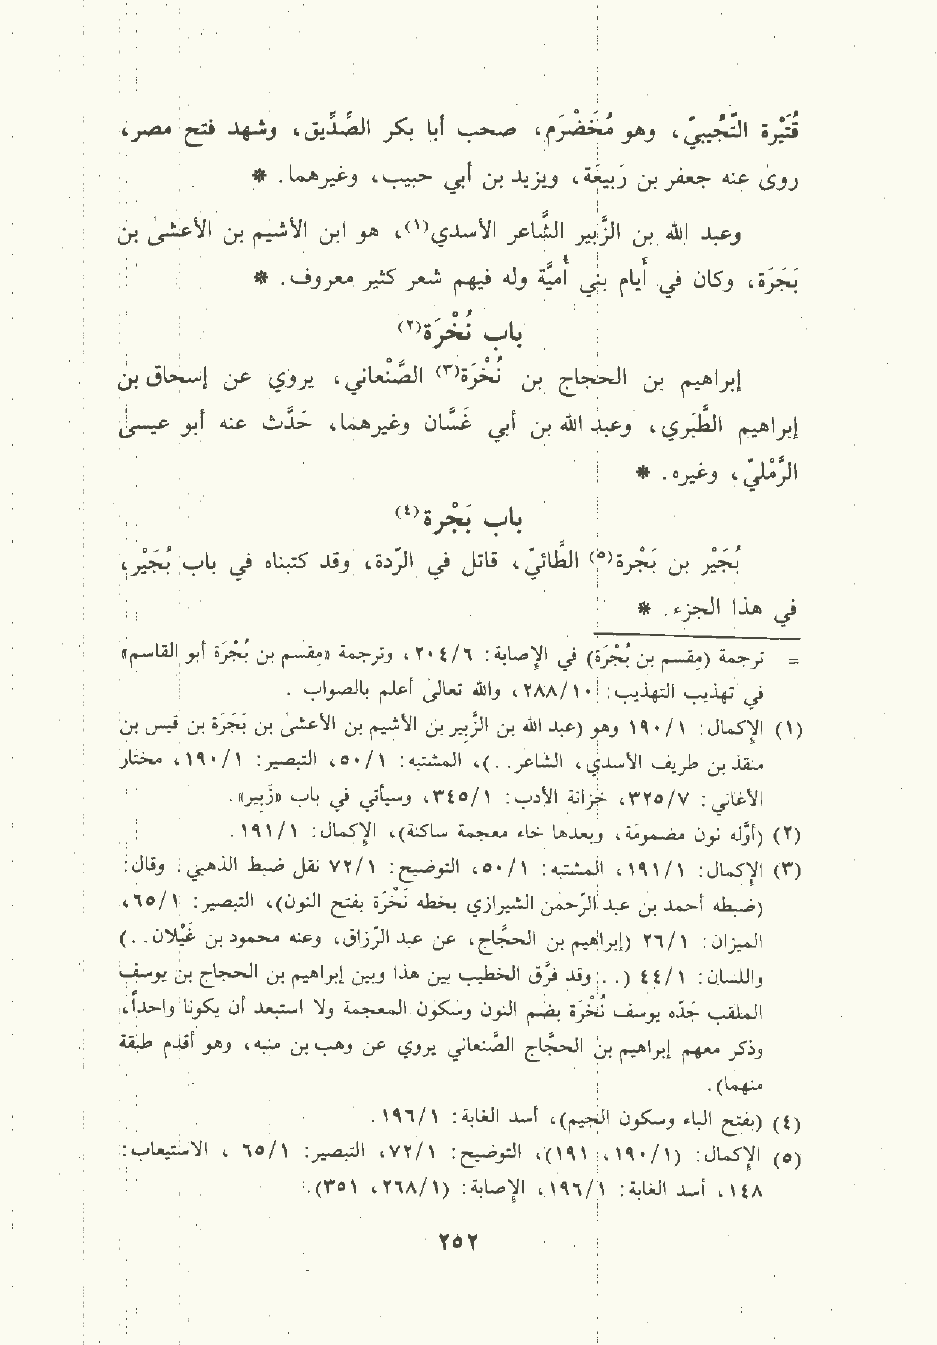 قُتَيْرة التُّجِيبيّ، وهو مُخَضْرَم، صحب أبا بكر الصِّدِّيق، وشهد فتح مصر،
روىٰ عنه جعفر بن رَبيعَة، ويزيد بن أبي حبيب، وغيرهما. *
وعبد الله بن الزَّبير الشَّاعر الأسدي(١)، هو ابن الأشيم بن الأعشىٰ بن
بَجَرَة، وكان في أيام بني أُميَّة وله فيهم شعر كثير معروف. *
باب نُخْرَة(٢)
إبراهيم بن الحجاج بن نُخْرَة(٣) الصَّنْعاني، يروي عن إسحاق بن
إبراهيم الطَّبَري، وعبد الله بن أبي غَسَّان وغيرهما، حَدَّث عنه أبو عيسىٰ
الرَّمْليّ، وغيره. *
باب بَجْرة(٤)
بُجَيْر بن بَجْرة(٥) الطَّائيّ، قاتل في الرِّدة، وقد كتبناه في باب بُجَيْر،
في هذا الجزء. *
= ترجمة (مِقسم بن بُجْرَة) في الإصابة: ٢٠٤/٦، وترجمة «مِقسم بن بُجْرَة أبو القاسم»
في تهذيب التهذيب: ٢٨٨/١٠، والله تعالىٰ أعلم بالصواب.
(١) الإكمال: ١٩٠/١ وهو (عبد الله بن الزَّبِير بن الأشيم بن الأعشىٰ بن بَجَرَة بن قيس بن
منقذ بن طريف الأسدي، الشاعر..)، المشتبه: ٥٠/١، التبصير: ١٩٠/١، مختار
الأغاني: ٣٢٥/٧، خزانة الأدب: ٣٤٥/١، وسيأتي في باب «زَبير».
(٢) (أوله نون مضمومة، وبعدها خاء معجمة ساكنة)، الإكمال: ١٩١/١.
(٣) الإكمال: ١٩١/١، المشتبه: ٥٠/١، التوضيح: ٧٢/١ نقل ضبط الذهبي: وقال:
(ضبطه أحمد بن عبد الرحمن الشيرازي بخطه نَخْرَة بفتح النون)، التبصير: ٦٥/١،
الميزان: ٢٦/١ (إبراهيم بن الحجَّاج، عن عبد الرزَّاق، وعنه محمود بن غَيْلان..)
واللسان: ٤٤/١ (.. وقد فرَّق الخطيب بين هذا وبين إبراهيم بن الحجاج بن يوسف
الملقب جَدّه يوسف نُخْرَة بضم النون وسكون المعجمة ولا استبعد أن يكونا واحداً،
وذكر معهم إبراهيم بن الحجَّاج الصَّنعاني يروي عن وهب بن منبه، وهو أقدم طبقة
منهما).
(٤) (بفتح الباء وسكون الجيم)، أسد الغابة: ١٩٦/١.
(٥) الإكمال: (١٩٠/١، ١٩١)، التوضيح: ٧٢/١، التبصير: ٦٥/١، الاستيعاب:
١٤٨، أسد الغابة: ١٩٦/١، الإصابة: (٢٦٨/١، ٣٥١).
٢٥٢